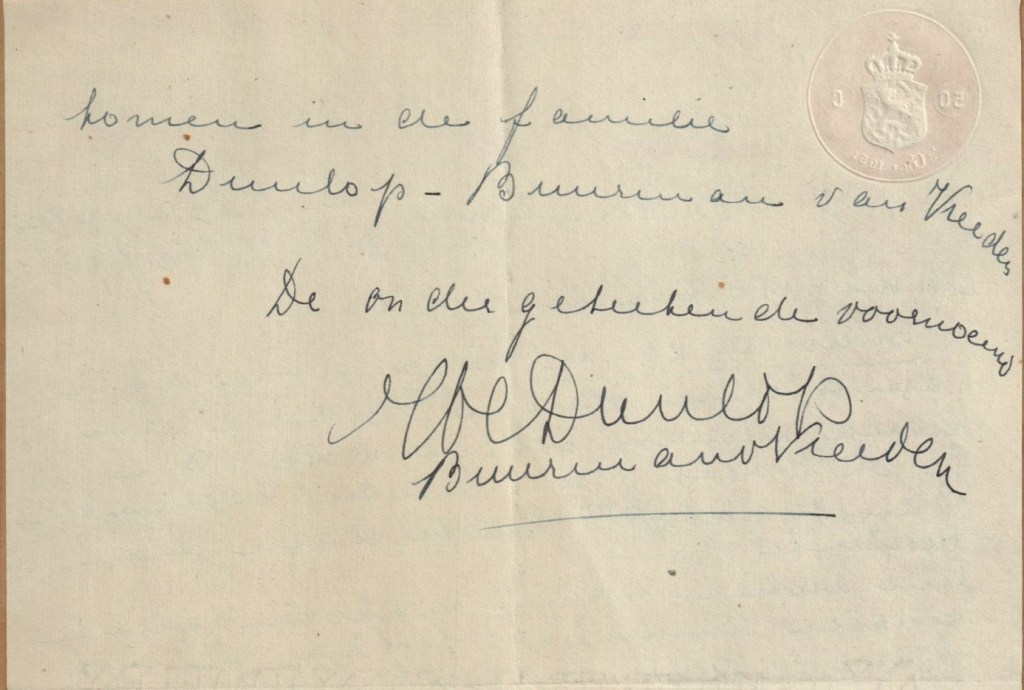 komen in de familie
Dunlop - Buurman van Vreeden
De ondergeteekende voornoemd
Dunlop
Buurman v Vreeden